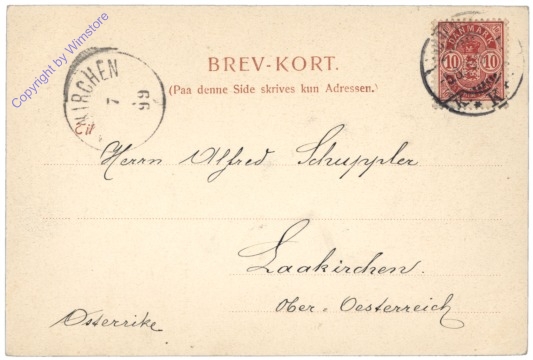 Copyright by Wimstore
BREV-KORT.
(Paa denne Side skrives kun Adressen.)
DANMARK
10 10
KIRCHEN
7
99
K
Herrn Alfred Schuppler
Laakirchen.
Ober-Oesterreich
Østerrike